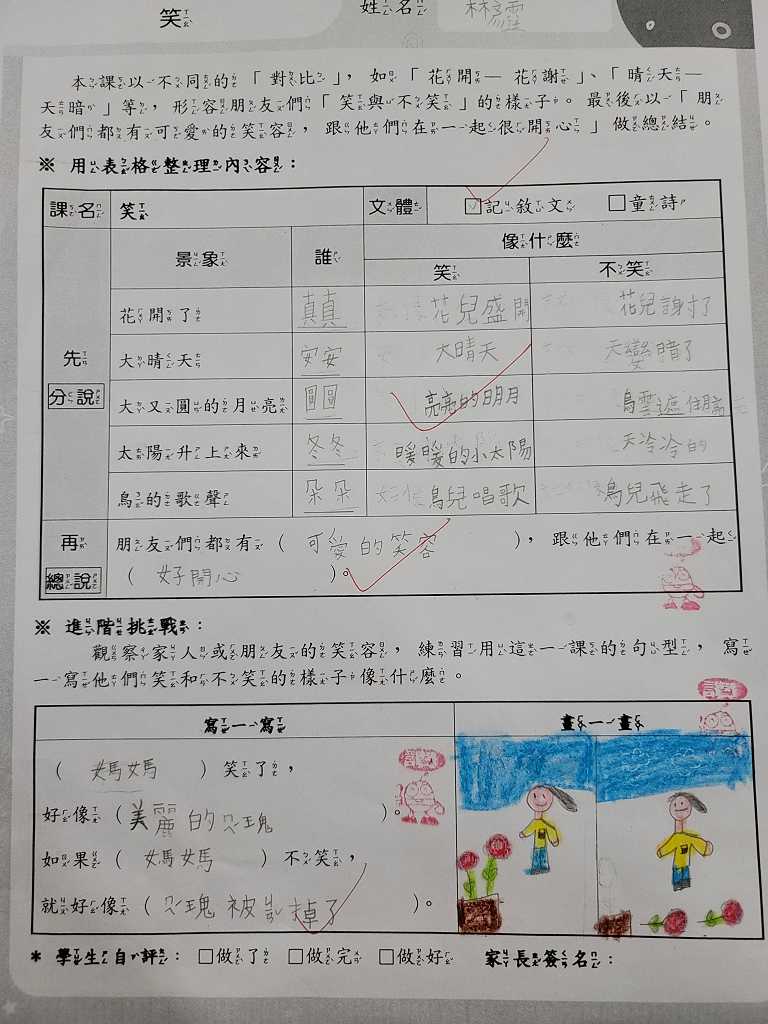 笑 姓名 林
本課以不同的「對比」，如「花開—花謝」、「晴天—
天暗」等，形容朋友們「笑與不笑」的樣子。最後以「朋
友們都有可愛的笑容，跟他們在一起很開心」做總結。
※ 用表格整理內容：
課名 笑 文體 ☑記敘文 □童詩
景象 誰 像什麼
笑 不笑
花開了 真真 花兒盛開 花兒謝了
先 大晴天 安安 大晴天 天變暗了
分說 大又圓的月亮 圓圓 亮亮的明月 烏雲遮住
太陽升上來 冬冬 暖暖的小太陽 天冷冷的
鳥的歌聲 朵朵 鳥兒唱歌 鳥兒飛走了
再 朋友們都有（可愛的笑容），跟他們在一起
總說 （好開心）。
※ 進階挑戰：
觀察家人或朋友的笑容，練習用這一課的句型，寫
一寫他們笑和不笑的樣子像什麼。
寫一寫 畫一畫
（媽媽）笑了，
好像（美麗的ㄇㄟˊ瑰）。
如果（媽媽）不笑，
就好像（瑰被掉了）。
* 學生自評：□做了 □做完 □做好 家長簽名：